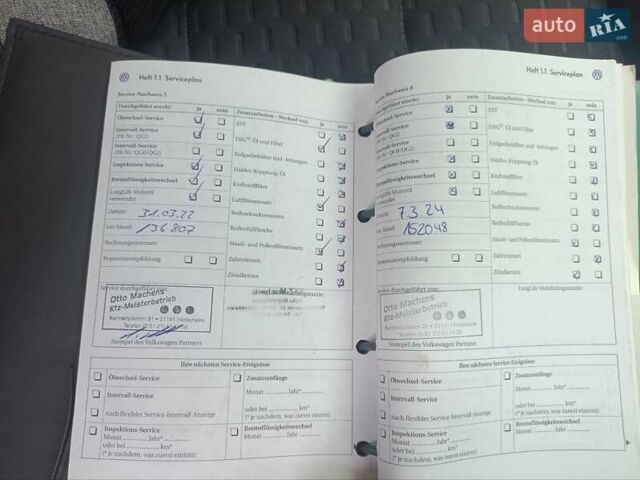 auto RIA .com
Heft 1.1 Serviceplan
Service-Nachweis 5
Durchgeführt wurde: ja nein
Ölwechsel-Service
Intervall-Service
(PR-Nr.: QG1)
Intervall-Service
(PR-Nr.: QG0/QG2)
Inspektions-Service
Bremsflüssigkeitswechsel
LongLife Motoröl
verwendet
Datum: 31.03.22
km-Stand: 136 807
Rechnungsnummer:
Reparaturempfehlung
Zusatzarbeiten - Wechsel von: ja nein
ATF
DSG®-Öl und Filter
Erdgasbehälter und -leitungen
Haldex-Kupplung Öl
Kraftstofffilter
Luftfiltereinsatz
Reifendruckssensoren
Reifenfüllflasche
Staub- und Pollenfiltereinsatz
Zahnriemen
Zündkerzen
Service durchgeführt von:
Otto Machens
Kfz-Meisterbetrieb
31 31141 Hildesheim
Stempel des Volkswagen Partners
Ihre nächsten Service-Ereignisse
Ölwechsel-Service
Intervall-Service
nach flexibler Service-Intervall-Anzeige
Inspektions-Service
Monat Jahr*
oder bei km*
(* je nachdem, was zuerst eintritt)
Zusatzumfänge
Monat Jahr*
oder bei km*
(* je nachdem, was zuerst eintritt)
Bremsflüssigkeitswechsel
Monat Jahr
Heft 1.1 Serviceplan
Service-Nachweis 6
Durchgeführt wurde: ja nein
Ölwechsel-Service
Intervall-Service
(PR-Nr.: QG1)
Intervall-Service
(PR-Nr.: QG0/QG2)
Inspektions-Service
Bremsflüssigkeitswechsel
LongLife Motoröl
verwendet
Datum: 7.3.24
km-Stand: 152048
Rechnungsnummer:
Reparaturempfehlung
Zusatzarbeiten - Wechsel von: ja nein
ATF
DSG®-Öl und Filter
Erdgasbehälter und -leitungen
Haldex-Kupplung Öl
Kraftstofffilter
Luftfiltereinsatz
Reifendruckssensoren
Reifenfüllflasche
Staub- und Pollenfiltereinsatz
Zahnriemen
Zündkerzen
Service durchgeführt von:
LongLife Mobilitätsgarantie:
Otto Machens
Kfz-Meisterbetrieb
31 31141 Hildesheim
Stempel des Volkswagen Partners
Ihre nächsten Service-Ereignisse
Ölwechsel-Service
Intervall-Service
nach flexibler Service-Intervall-Anzeige
Inspektions-Service
Monat Jahr*
oder bei km*
(* je nachdem, was zuerst eintritt)
Zusatzumfänge
Monat Jahr*
oder bei km*
(* je nachdem, was zuerst eintritt)
Bremsflüssigkeitswechsel
Monat Jahr